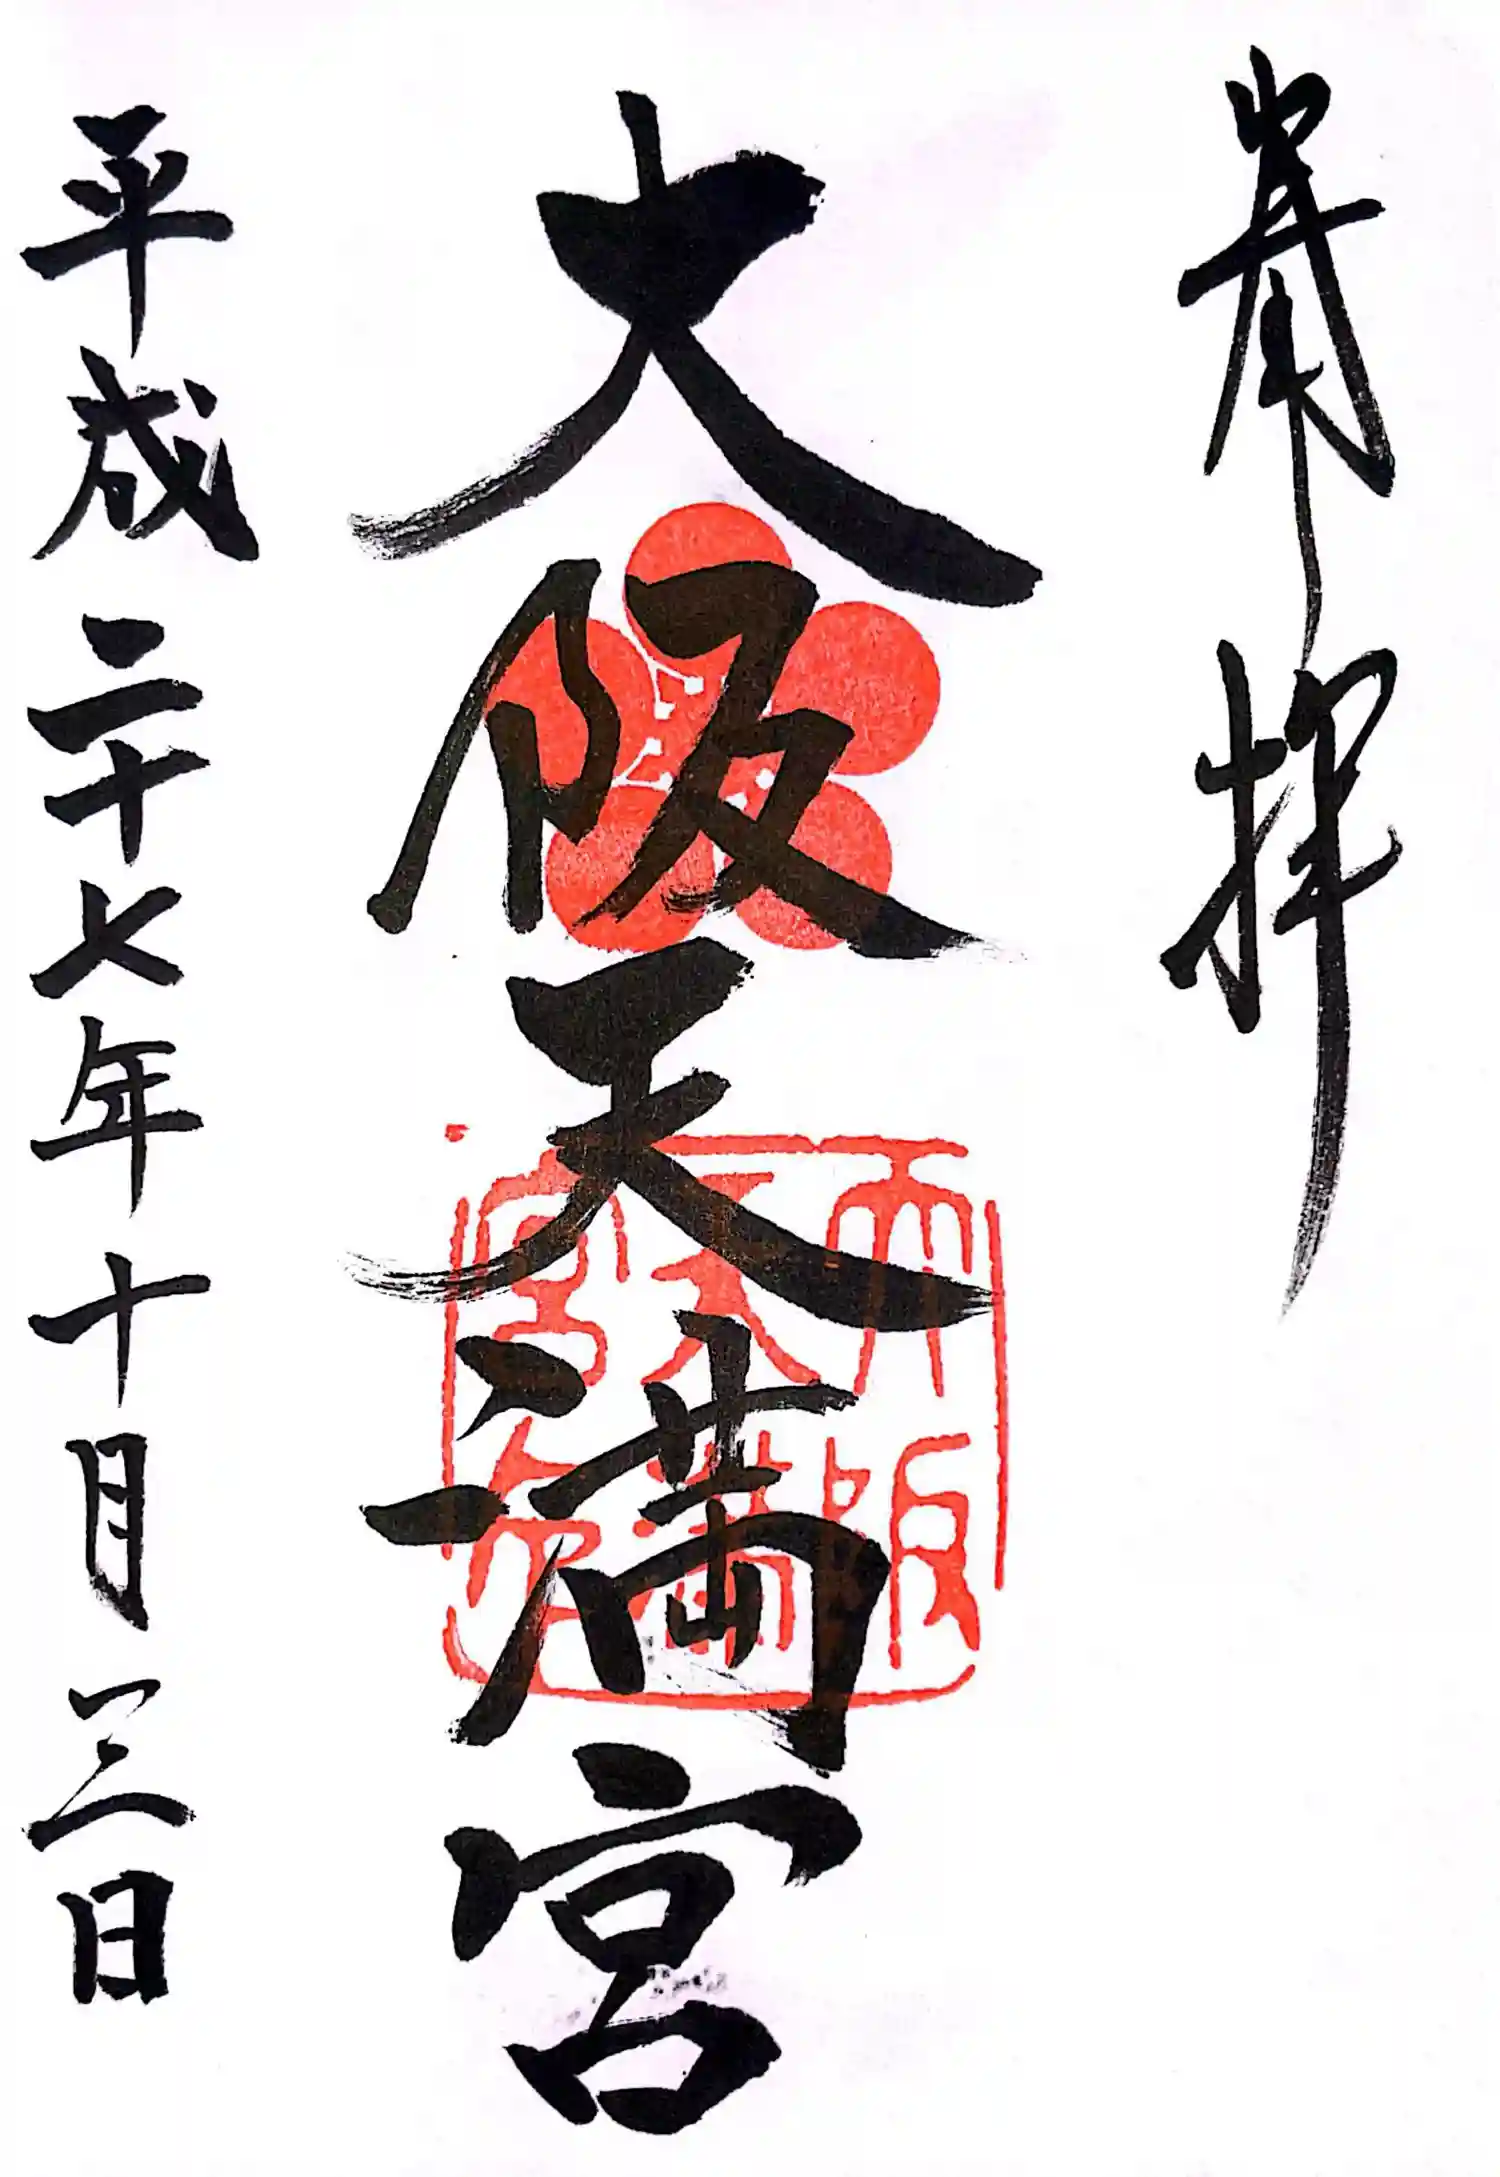 奉拝
大阪天満宮
大阪
天満
宮印
平成二十七年十月三日